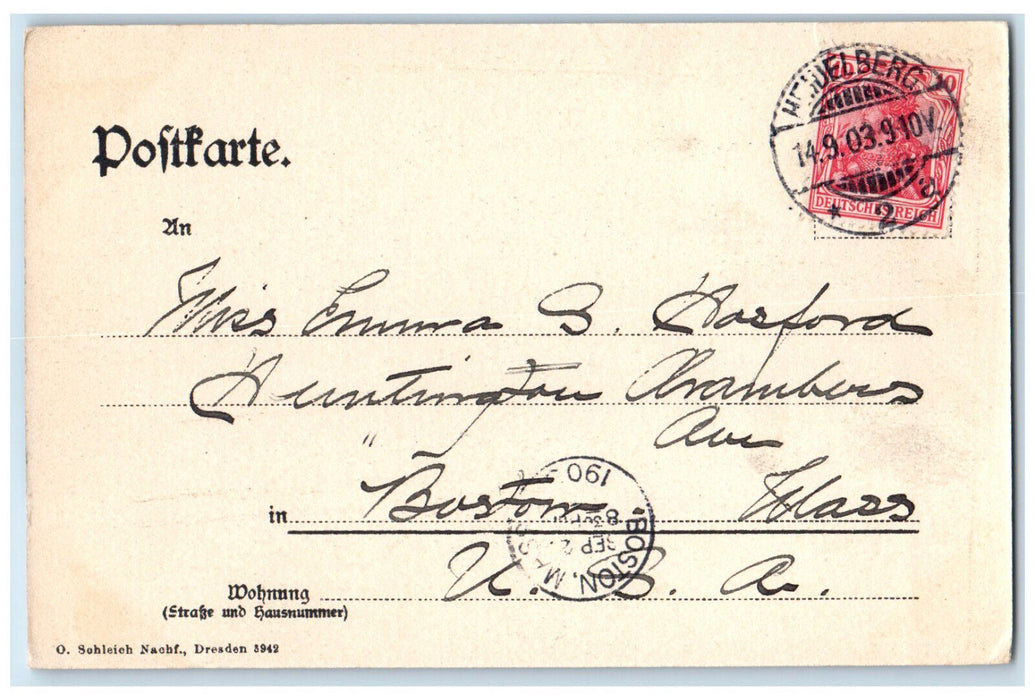 Postkarte.
HEIDELBERG
14.9.03.9-10V.
* 2 a
10
DEUTSCHES REICH
An
Miss Emma G. Harford
Huntington Chambers
" Ave
in Boston Mass
BOSTON, MASS
SEP 2
8 30 PM
190
U. S. A.
Wohnung
(Straße und Hausnummer)
O. Schleich Nachf., Dresden 3942